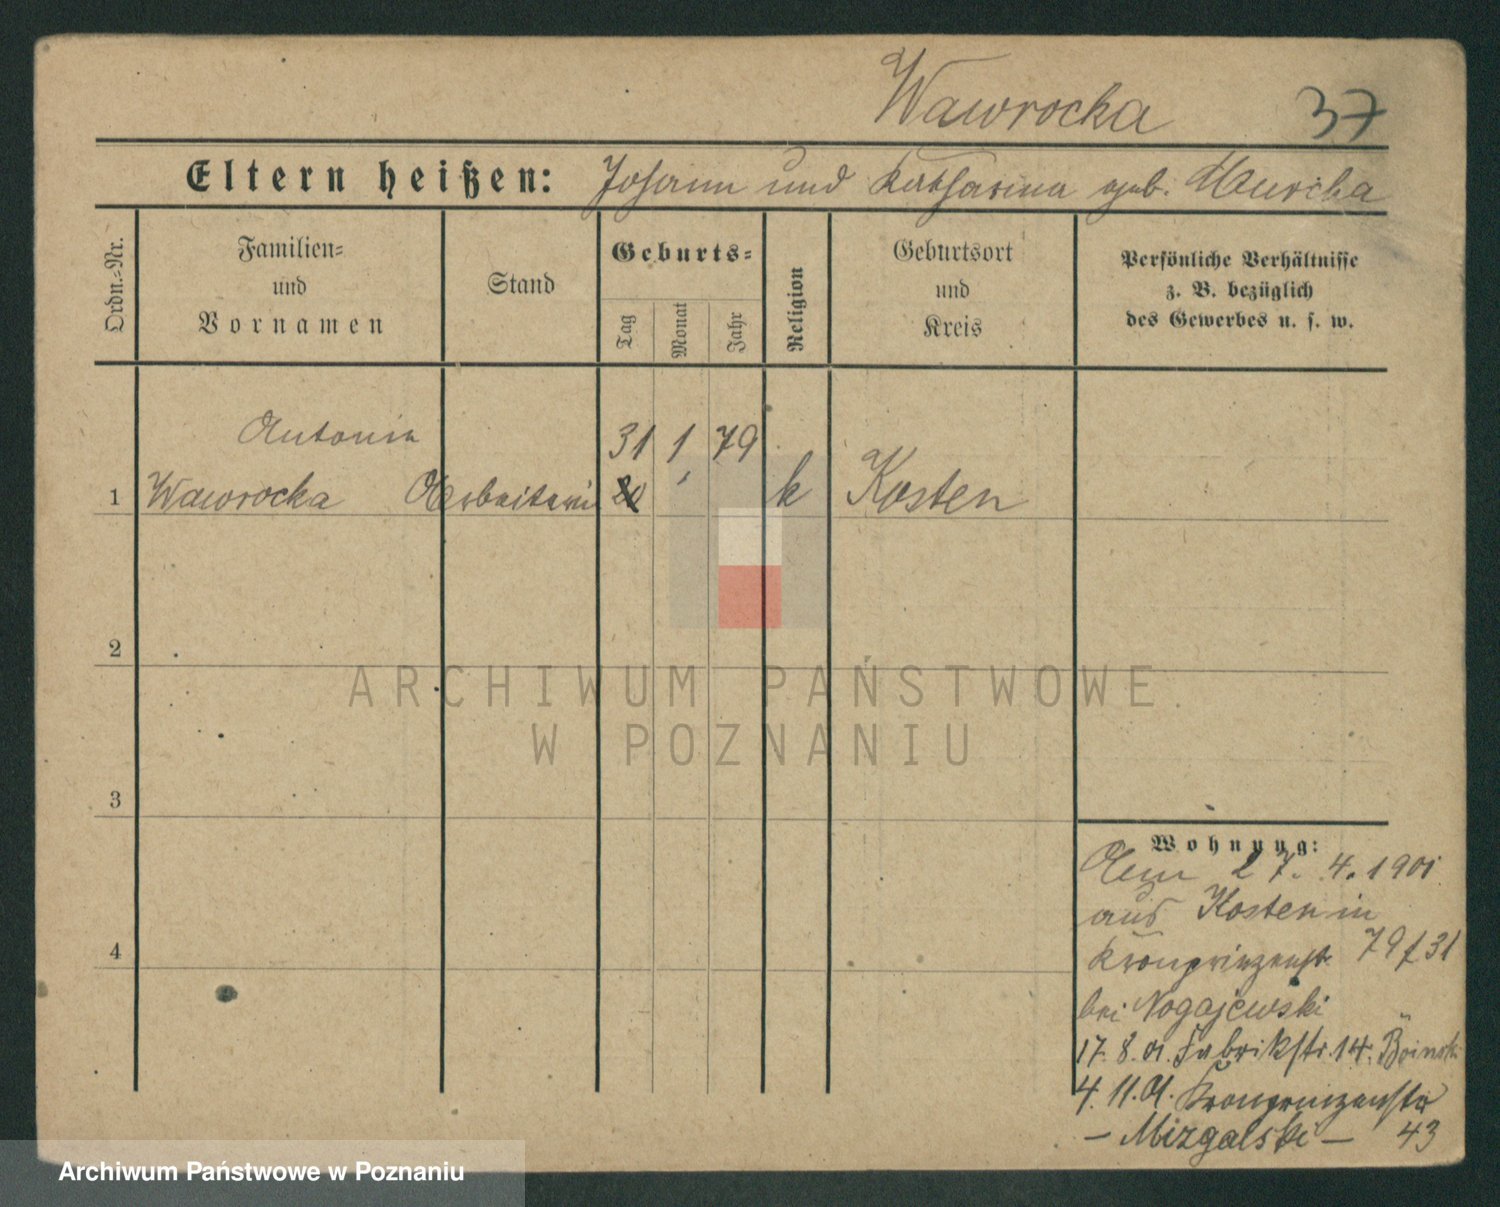 Wawrocka 37
Eltern heißen: Johann und Katharina geb. Murcha
Ordn.-Nr.
Familien-
und
Vornamen
Stand
Geburts-
Tag
Monat
Jahr
Religion
Geburtsort
und
Kreis
Persönliche Verhältnisse
z. B. bezüglich
des Gewerbes u. s. w.
Antonia 31 1 79
1 Wawrocka Arbeiterin 20 k Kosten
2
3
4
Wohnung:
Am 27. 4. 1901
aus Kosten in
Kronprinzenstr. 79 f 31
bei Nogajewski
17. 8. 01. Fabrikstr. 14. Boinski
4. 11. 01. Kronprinzenstr
– Mizgalski – 43
ARCHIWUM PAŃSTWOWE
W POZNANIU
Archiwum Państwowe w Poznaniu